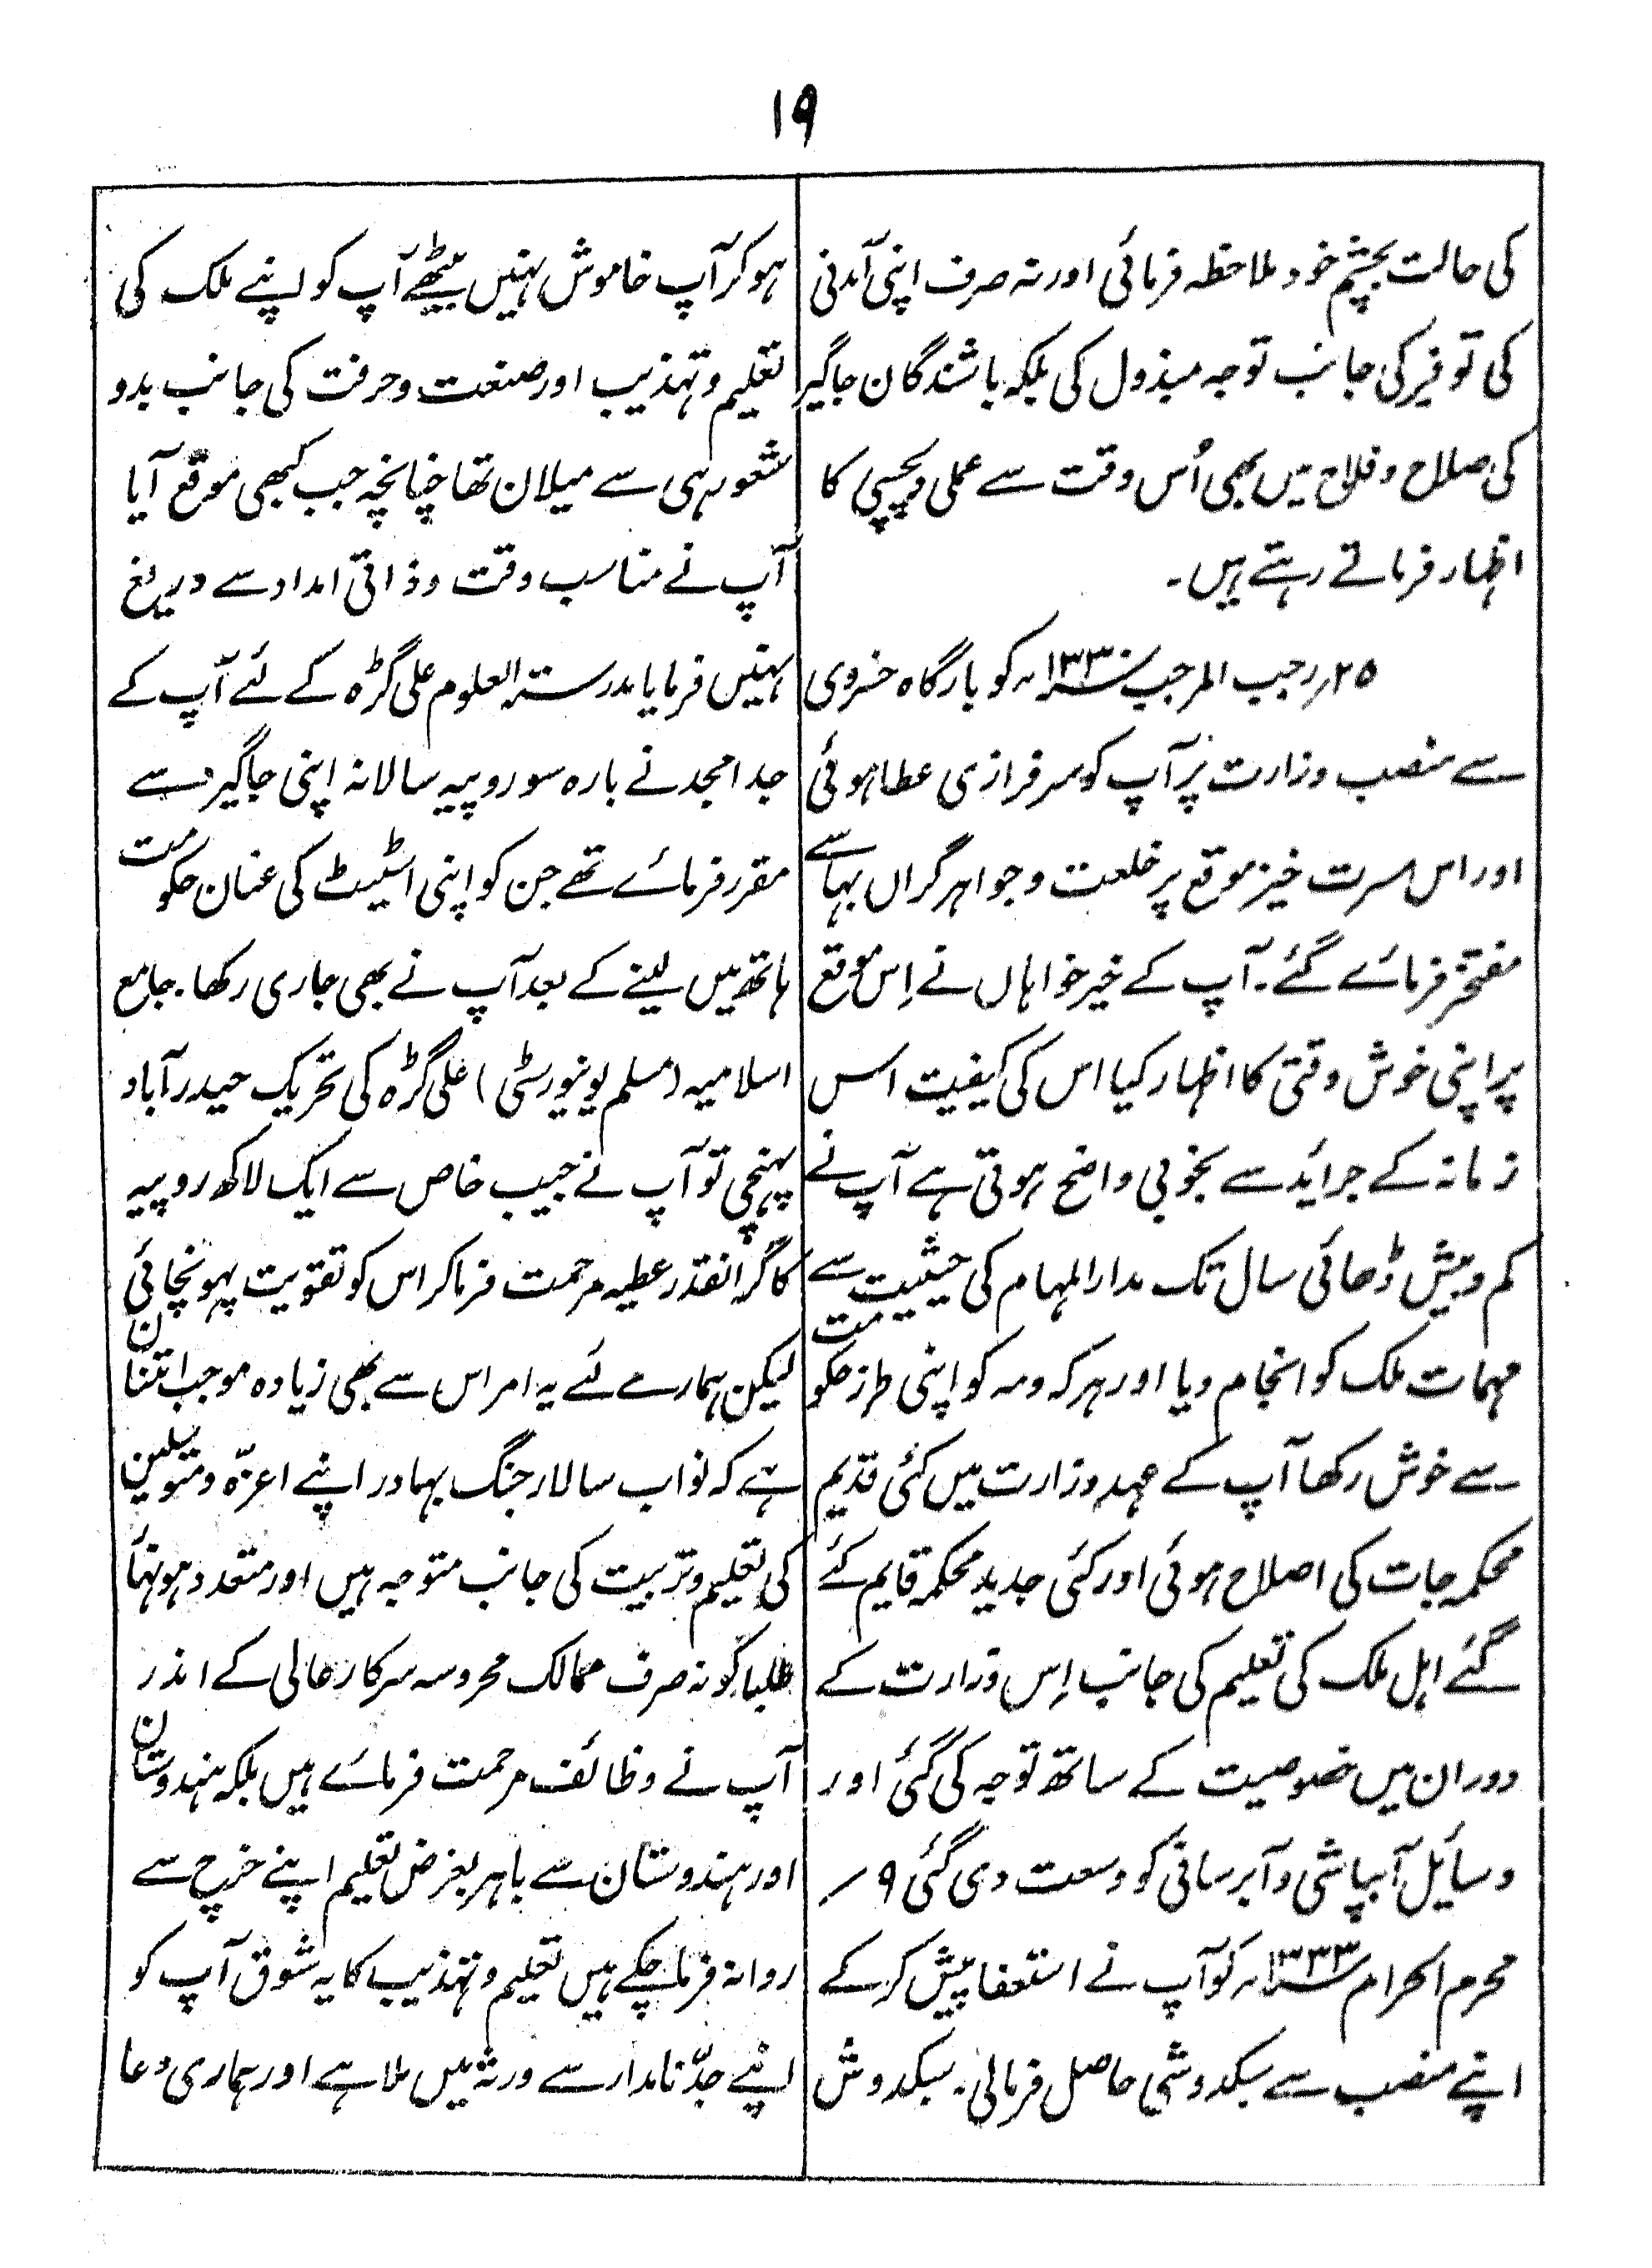 ۱۹
کی حالت بچشم خود ملاحظہ فرمائی اور نہ صرف اپنی آمدنی
کی توفیر کی جانب توجہ مبذول کی بلکہ باشندگان جاگیر
کی صلاح و فلاح میں بھی اُس وقت سے عملی دلچسپی کا
اظہار فرماتے رہتے ہیں۔
۲۵؍رجب المرجب سنہ۱۳۳۰ء کو بارگاہ خسروی
سے منصب وزارت پر آپ کو سرفرازی عطا ہوئی
اور اس مسرت خیز موقع پر خلعت و جواہر گراں بہا سے
مفتخر فرمائے گئے۔ آپ کے خیر خواہاں نے اِس موقع
پر اپنی خوش وقتی کا اظہار کیا اس کی کیفیت اس
زمانہ کے جراید سے بخوبی واضح ہوتی ہے آپ نے
کم و بیش ڈھائی سال تک مدارالمہام کی حیثیت سے
مہمات ملک کو انجام دیا اور ہر کہ و مہ کو اپنی طرز حکومت
سے خوش رکھا آپ کے عہد وزارت میں کئی قدیم
محکمہ جات کی اصلاح ہوئی اور کئی جدید محکمہ قایم کئے
گئے اہل ملک کی تعلیم کی جانب اِس وزارت کے
دوران میں خصوصیت کے ساتھ توجہ کی گئی اور
وسائل آبپاشی و آبرسانی کو وسعت دی گئی ۹؍
محرم الحرام سنہ۱۳۳۳ء کو آپ نے استعفا پیش کر کے
اپنے منصب سے سبکدوشی حاصل فرمالی۔ سبکدوش
ہو کر آپ خاموش نہیں بیٹھے آپ کو اپنے ملک کی
تعلیم و تہذیب اور صنعت و حرفت کی جانب بدو
شعور ہی سے میلان تھا چنانچہ جب کبھی موقع آیا
آپ نے مناسب وقت و ذاتی امداد سے دریغ
نہیں فرمایا مدرستہ العلوم علی گڑہ کے لئے آپ کے
جد امجد نے بارہ سو روپیہ سالانہ اپنی جاگیر سے
مقرر فرمائے تھے جن کو اپنی اسٹیٹ کی عنان حکومت
ہاتھ میں لینے کے بعد آپ نے بھی جاری رکھا۔ جامع
اسلامیہ (مسلم یونیورسٹی) علی گڑہ کی تحریک حیدرآباد
پہنچی تو آپ نے جیب خاص سے ایک لاکھ روپیہ
کا گرانقدر عطیہ مرحمت فرما کر اس کو تقویت پہونچائی
لیکن ہمارے لئے یہ امر اس سے بھی زیادہ موجب اتنان
ہے کہ نواب سالار جنگ بہادر اپنے اعزّہ و متوسلین
کی تعلیم و تربیت کی جانب متوجہ ہیں اور متعدد ہونہا
طلبا کو نہ صرف ممالک محروسہ سرکار عالی کے اندر
آپ نے وظائف مرحمت فرمائے ہیں بلکہ ہندوستان
اور ہندوستان سے باہر بغرض تعلیم اپنے خرچ سے
روانہ فرما چکے ہیں تعلیم و تہذیب کا یہ شوق آپ کو
اپنے جدّ نامدار سے ورثہ میں ملا ہے اور ہماری دعا